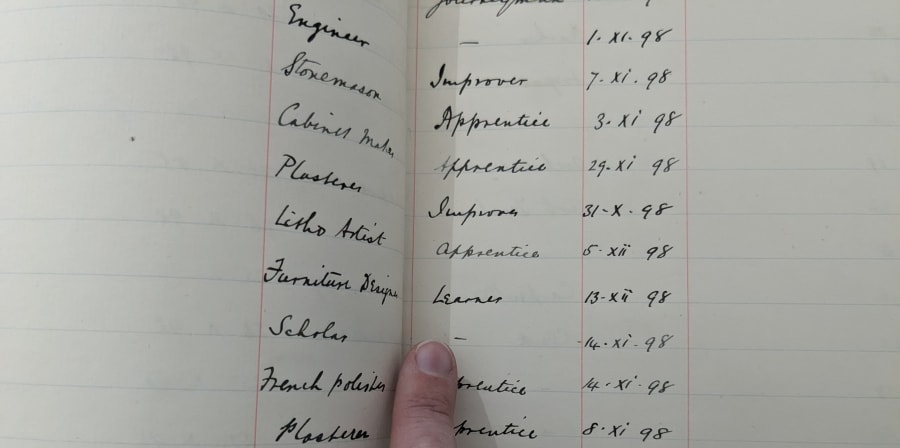 — 1. XI. 98
Engineer Improver 7. xi. 98
Stonemason Apprentice 3. xi 98
Cabinet Maker Apprentice 29. xi 98
Plasterer Improver 31-X-98
Litho Artist apprentice 5. xii 98
Furniture Designer Learner 13-xii 98
Scholar — 14. xi. 98
French polisher prentice 14. xi. 98
Plasterer prentice 8. xi 98